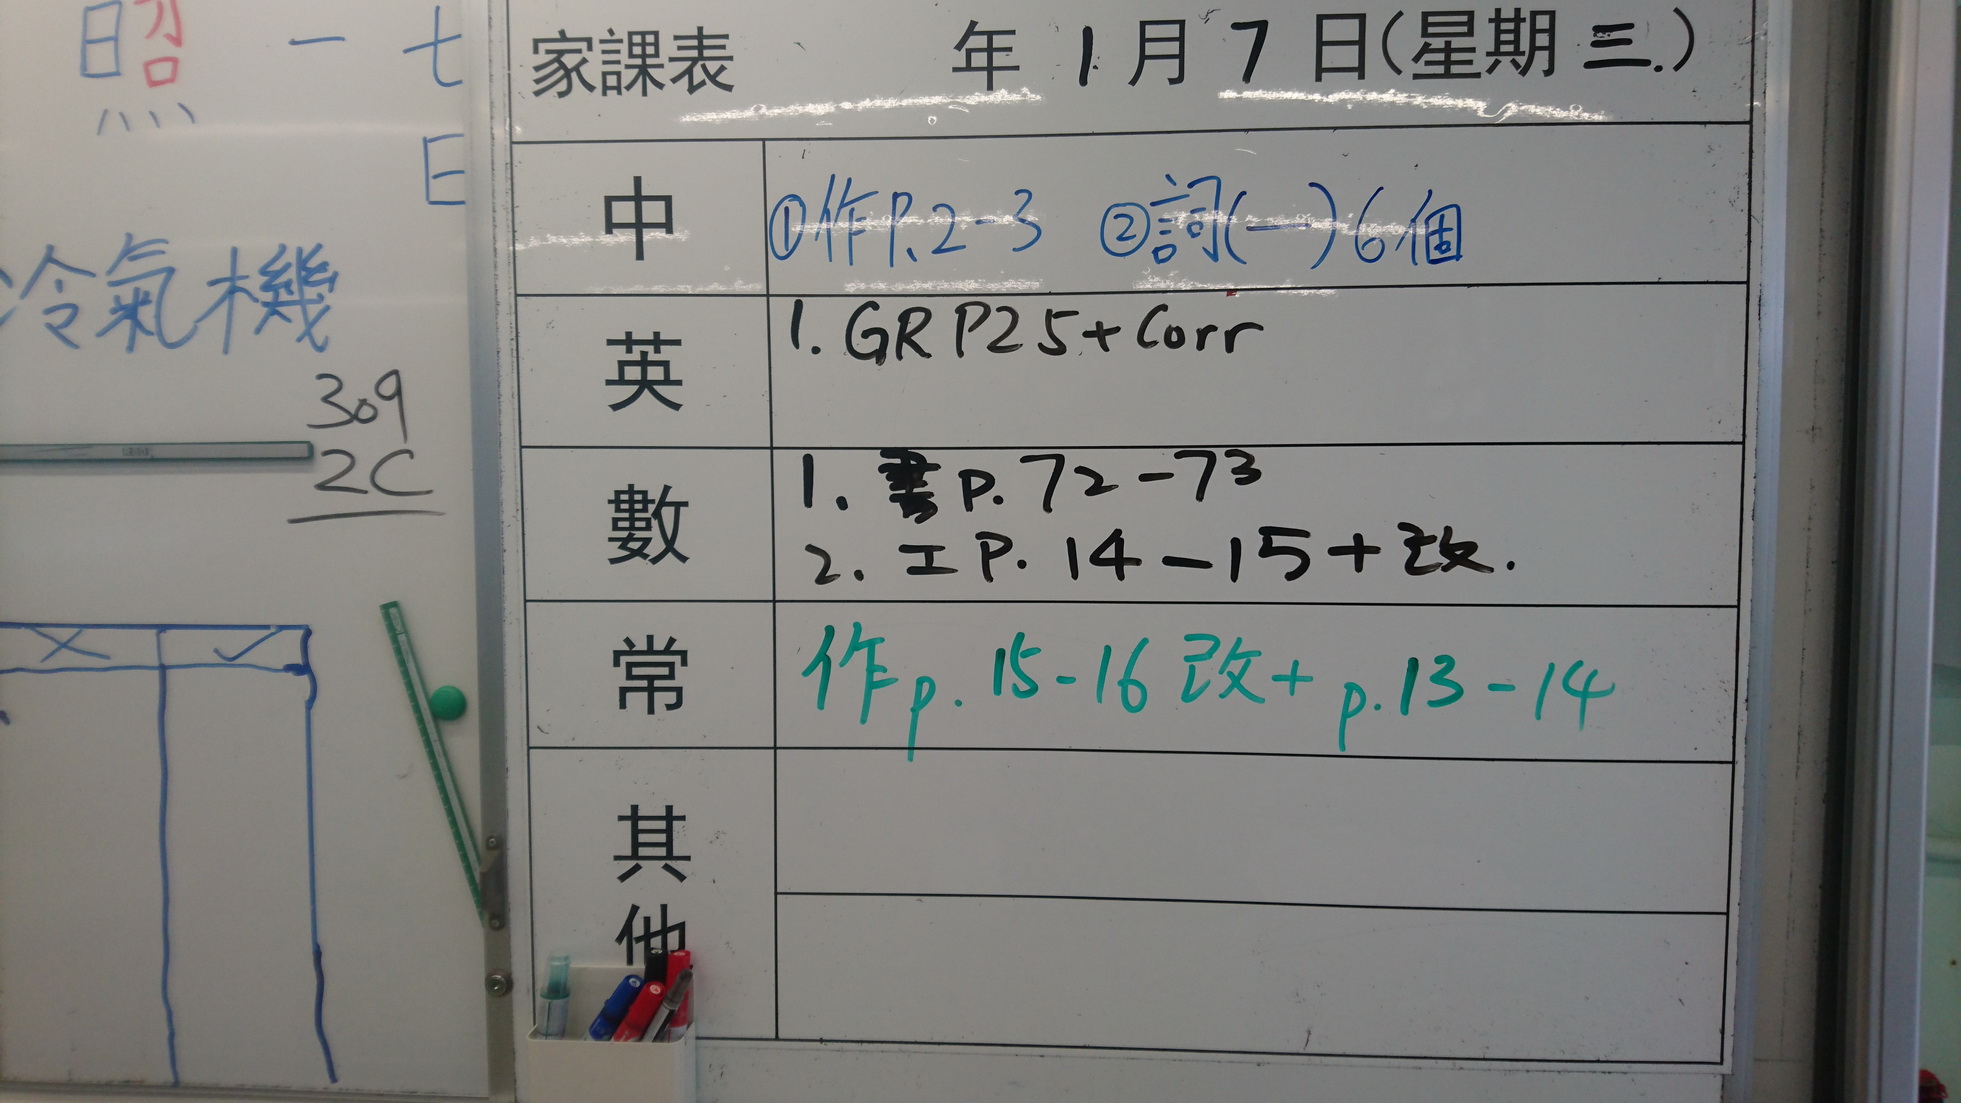 照 一 七
日
冷氣機
309
2C
家課表 年 1 月 7 日(星期 三.)
中 ①作P.2-3 ②詞(一)6個
英 1. GR P25+Corr
數 1. 書 p. 72-73
2. 工 P. 14-15+改.
常 作 p. 15-16 改+ p.13-14
其
他